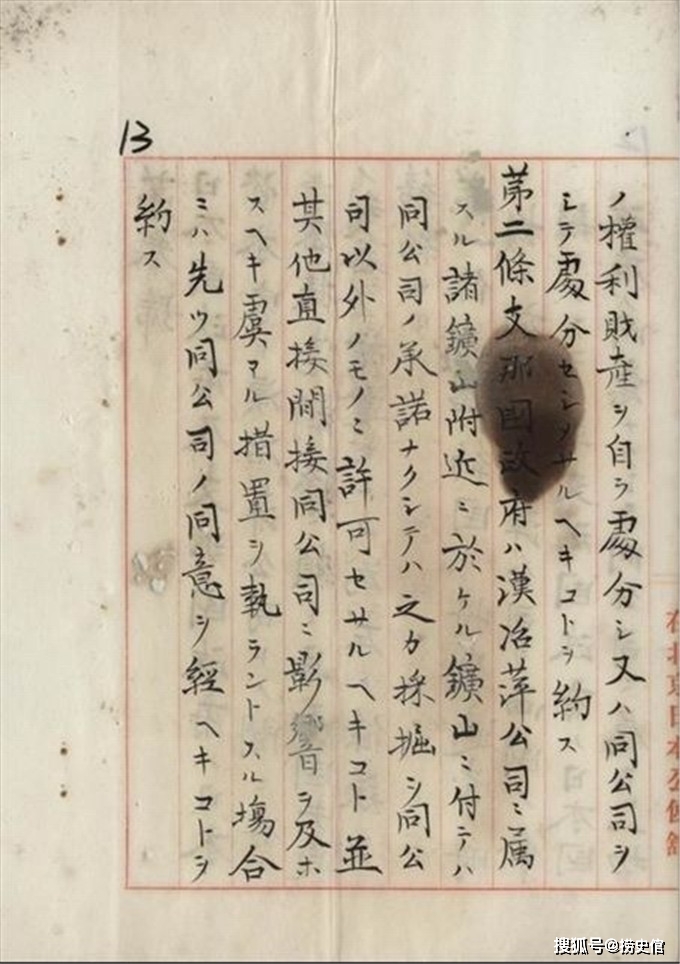 13
ノ權利財產ヲ自ラ處分シ又ハ同公司ヲ
シテ處分セシメサルヘキコトヲ約ス
第二條支那國政府ハ漢冶萍公司ニ属
スル諸鑛山附近ニ於ケル鑛山ニ付テハ
同公司ノ承諾ナクシテハ之カ採掘ヲ同公
司以外ノモノニ許可セサルヘキコト並
其他直接間接同公司ニ影響ヲ及ホ
スヘキ虞アル措置ヲ執ラントスル塲合
ニハ先ツ同公司ノ同意ヲ經ヘキコトヲ
約ス
在北京日本公使館
搜狐号@捞史官